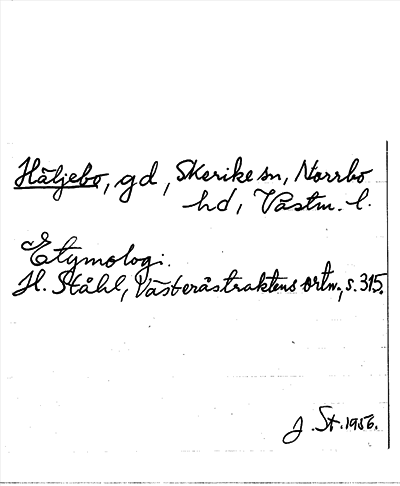 Häljebo, gd, Skerike sn, Norrbo
hd, Västm. l.
Etymologi.
H. Ståhl, Västeråstraktens ortn., s. 315.
J. St. 1956.